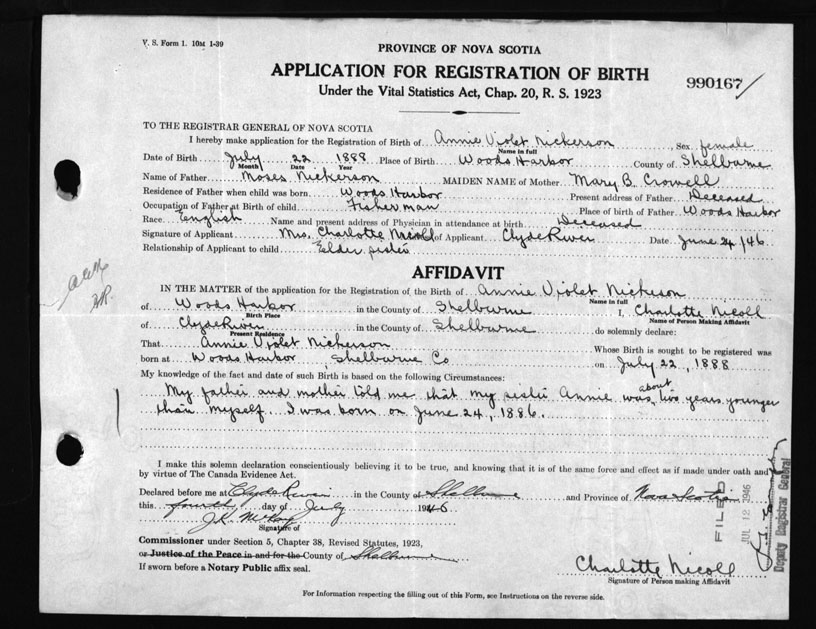 V. S. Form 1. 10M 1-39
PROVINCE OF NOVA SCOTIA
APPLICATION FOR REGISTRATION OF BIRTH
990167
Under the Vital Statistics Act, Chap. 20, R. S. 1923
TO THE REGISTRAR GENERAL OF NOVA SCOTIA
I hereby make application for the Registration of Birth of Annie Violet Nickerson Sex female
Name in full
Date of Birth July 22 1888 Place of Birth Woods Harbor County of Shelburne
Month Date Year
Name of Father Moses Nickerson MAIDEN NAME of Mother Mary B. Crowell
Residence of Father when child was born Woods Harbor Present address of Father Deceased
Occupation of Father at Birth of child Fisherman Place of birth of Father Woods Harbor
Race English Name and present address of Physician in attendance at birth Deceased
Signature of Applicant Mrs. Charlotte Nicoll of Applicant Clyde River Date June 24/46
Relationship of Applicant to child Elder sister
AFFIDAVIT
IN THE MATTER of the application for the Registration of the Birth of Annie Violet Nickerson
Name in full
of Woods Harbor in the County of Shelburne I, Charlotte Nicoll
Birth Place Name of Person Making Affidavit
of Clyde River in the County of Shelburne do solemnly declare:
Present Residence
That Annie Violet Nickerson Whose Birth is sought to be registered was
born at Woods Harbor, Shelburne Co on July 22, 1888
My knowledge of the fact and date of such Birth is based on the following Circumstances:
My father and mother told me that my sister Annie was about two years younger
than myself. I was born on June 24, 1886.
I make this solemn declaration conscientiously believing it to be true, and knowing that it is of the same force and effect as if made under oath and
by virtue of The Canada Evidence Act.
Declared before me at Clyde River in the County of Shelburne and Province of Nova Scotia
this fourth day of July 1946
Signature of
Commissioner under Section 5, Chapter 38, Revised Statutes, 1923,
or Justice of the Peace in and for the County of Shelburne
If sworn before a Notary Public affix seal.
Charlotte Nicoll
Signature of Person making Affidavit
FILED
JUL 12 1946
Deputy Registrar General
For Information respecting the filling out of this Form, see Instructions on the reverse side.